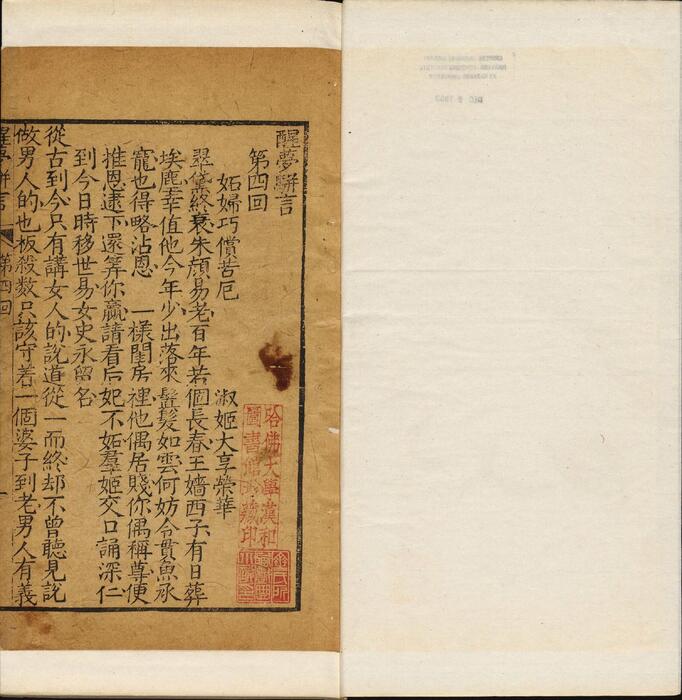 醒夢駢言
第四回
妬婦巧償苦厄 淑姬大享榮華
翠黛終衰朱顏易老百年若個長春王嬙西子有日葬
埃塵幸值他今年少出落來鬒髮如雲何妨令貫魚承
寵也得略沾恩 一樣閨房裡他偶居賤你偶稱尊便
推恩逮下還算你贏請看后妃不妬羣姬交口誦深仁
到今日時移世易女史永留名
從古到今只有講女人的說道從一而終却不曾聽見說
做男人的也板殺数只該守着一個婆子到老男人有義
醒夢駢言 第四回 一
哈佛大學漢和
圖書館珍藏印